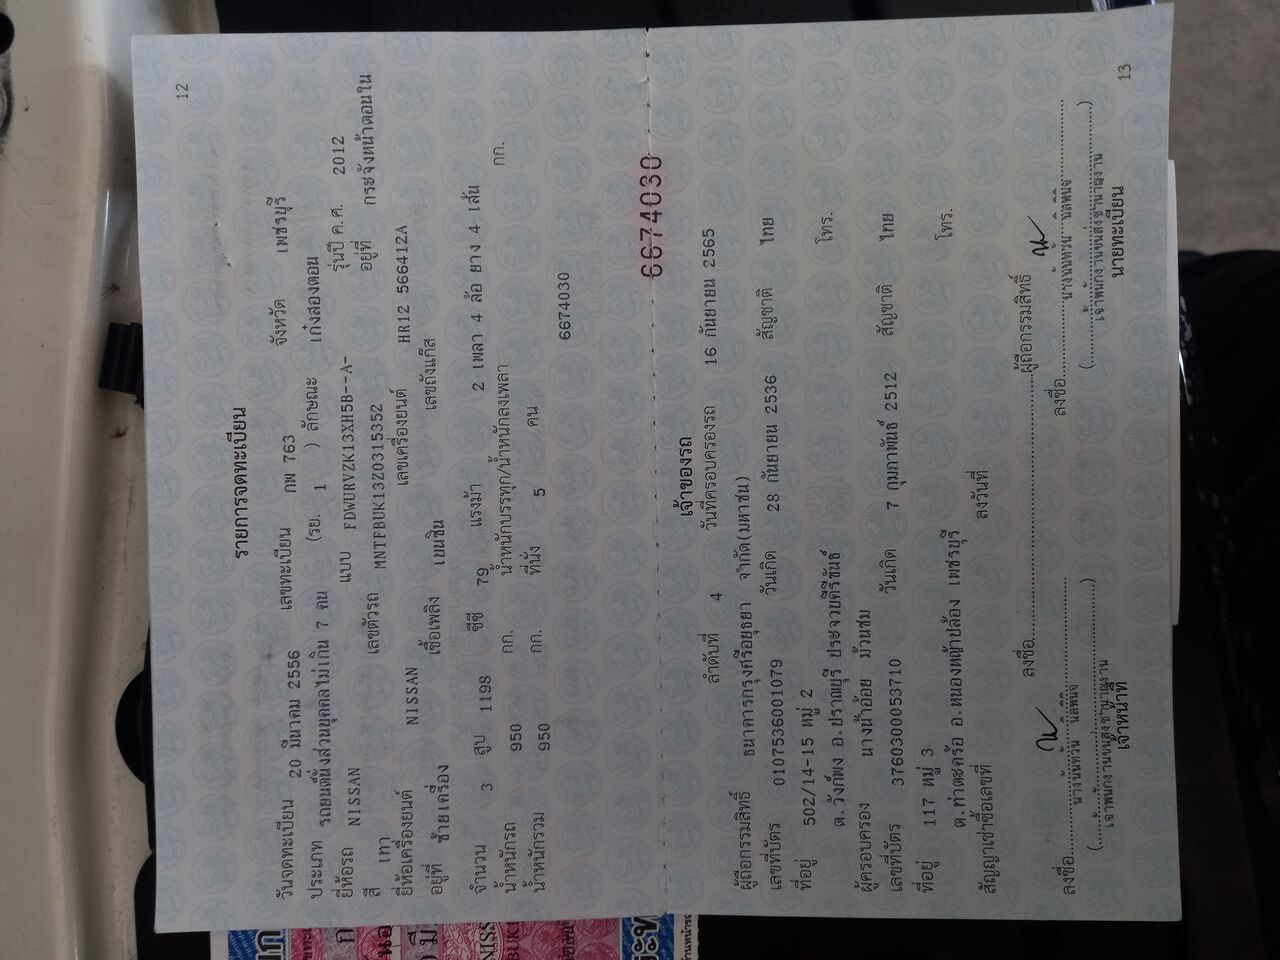 12
รายการจดทะเบียน
วันจดทะเบียน 20 มีนาคม 2556 เลขทะเบียน กพ 763 จังหวัด เพชรบุรี
ประเภท รถยนต์นั่งส่วนบุคคลไม่เกิน 7 คน (รย. 1 ) ลักษณะ เก๋งสองตอน
ยี่ห้อรถ NISSAN แบบ FDWURVZK13XH5B--A- รุ่นปี ค.ศ. 2012
สี เทา เลขตัวรถ MNTFBUK13Z0315352 อยู่ที่ กระจังหน้าตอนใน
ยี่ห้อเครื่องยนต์ NISSAN เลขเครื่องยนต์ HR12 566412A
อยู่ที่ ซ้ายเครื่อง เชื้อเพลิง เบนซิน เลขถังแก๊ส
จำนวน 3 สูบ 1198 ซีซี 79 แรงม้า 2 เพลา 4 ล้อ ยาง 4 เส้น
น้ำหนักรถ 950 กก. น้ำหนักบรรทุก/น้ำหนักลงเพลา กก.
น้ำหนักรวม 950 กก. ที่นั่ง 5 คน
6674030
6674030
เจ้าของรถ
ลำดับที่ 4 วันที่ครอบครองรถ 16 กันยายน 2565
ผู้ถือกรรมสิทธิ์ ธนาคารกรุงศรีอยุธยา จำกัด(มหาชน)
เลขที่บัตร 0107536001079 วันเกิด 28 กันยายน 2536 สัญชาติ ไทย
ที่อยู่ 502/14-15 หมู่ 2 โทร.
ต.วังก์พง อ.ปราณบุรี ประจวบคีรีขันธ์
ผู้ครอบครอง นางน้ำอ้อย ม้วนชม
เลขที่บัตร 3760300053710 วันเกิด 7 กุมภาพันธ์ 2512 สัญชาติ ไทย
ที่อยู่ 117 หมู่ 3 โทร.
ต.ท่าตะคร้อ อ.หนองหญ้าปล้อง เพชรบุรี
สัญญาเช่าซื้อเลขที่ ลงวันที่
ลงชื่อ ผู้ถือกรรมสิทธิ์
ลงชื่อ ลงชื่อ
เจ้าหน้าที่ นายทะเบียน
13